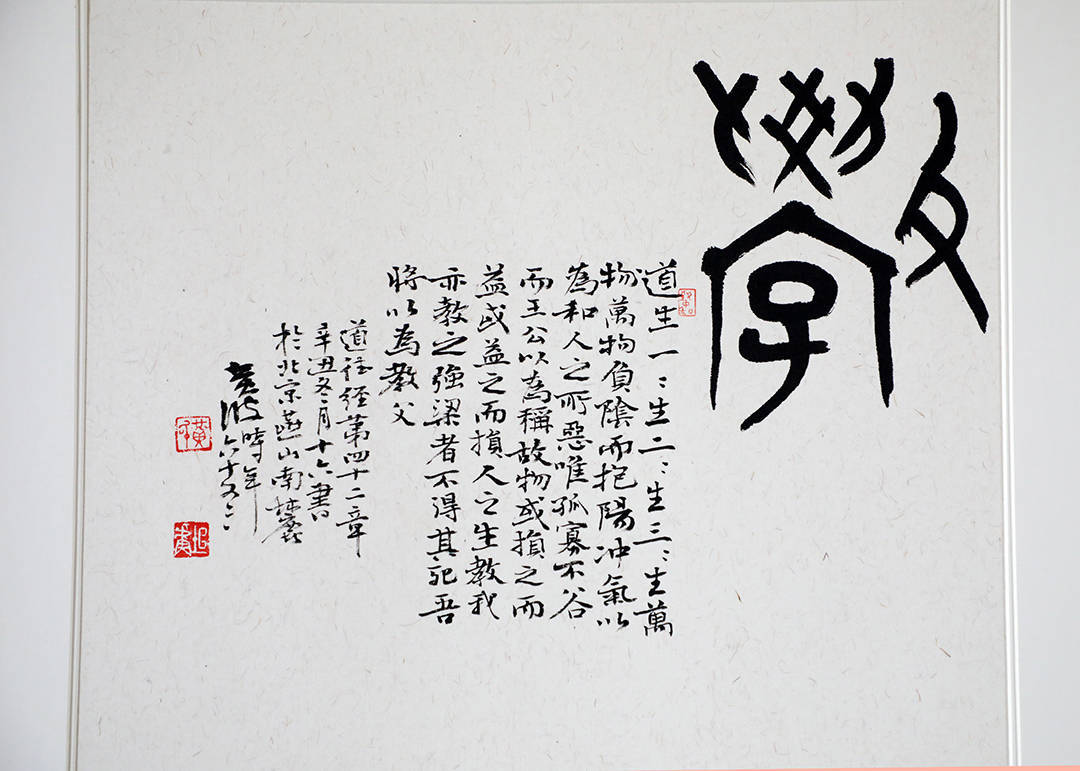 斅
道生一：生二：生三：生萬
物萬物負陰而抱陽冲氣以
為和人之所惡唯孤寡不谷
而王公以為稱故物或損之而
益或益之而損人之生教我
亦教之強梁者不得其死吾
將以為教父
道德經第四十二章
辛丑冬月十六書
於北京燕山南麓
時年六十